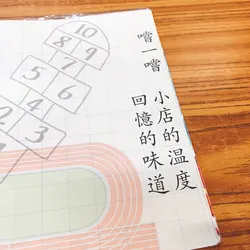 嚐一嚐
小店的溫度
回憶的味道
10
8 9
7
5 6
4
3